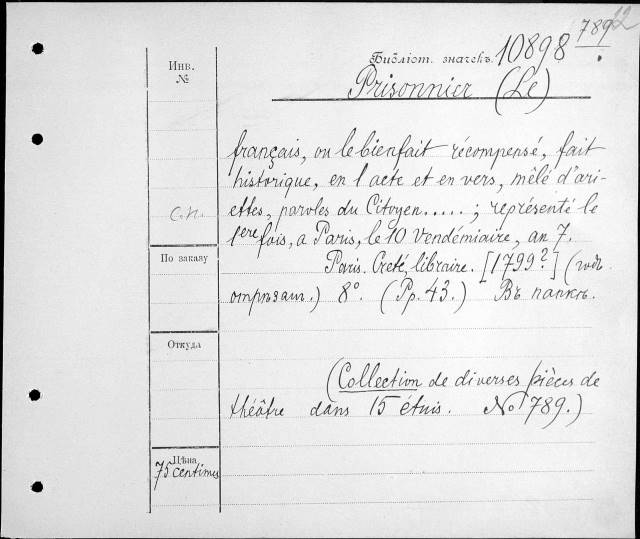 789
12
Библіот. значекъ. 10898
Prisonnier (Le)
Инв.
№
français, ou le bienfait récompensé, fait
historique, en 1 acte et en vers, mêlé d'ari-
ettes, paroles du Citoyen.....; représenté le
С.П.
1ere fois, a Paris, le 10 Vendémiaire, an 7.
По заказу
Paris. Creté, libraire. [1799?] (годъ
отрѣзан.) 8°. (Pp. 43.) Въ папкѣ.
Откуда
(Collection de diverses pièces de
théâtre dans 15 étuis. No 789.)
Цѣна
75 centimes